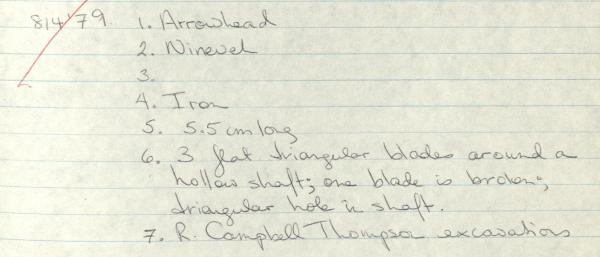 814'79. 1. Arrowhead
2. Nineveh
3.
4. Iron
5. 5.5cm long
6. 3 flat triangular blades around a
hollow shaft; one blade is broken;
triangular hole in shaft.
7. R. Campbell Thompson excavations